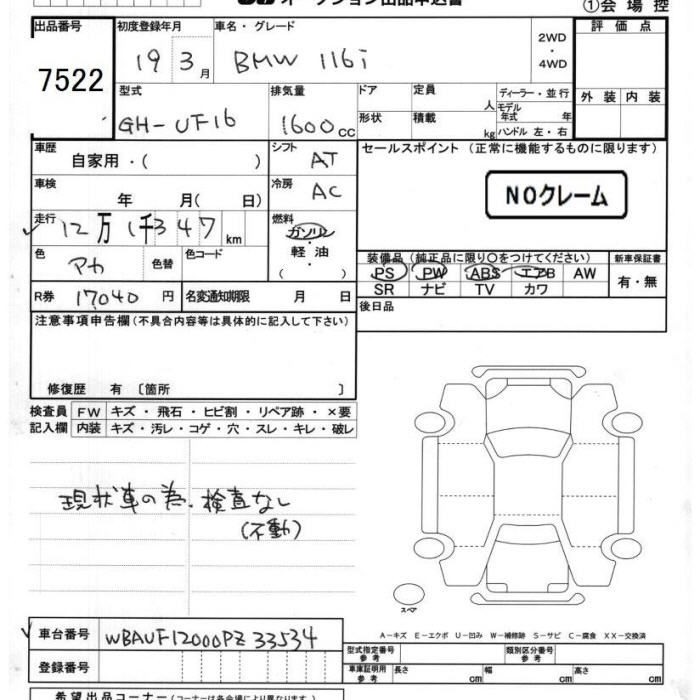 オークション出品申込書
①会 場 控
出品番号 初度登録年月 車名・グレード 評 価 点
7522 19 3月 BMW 116i 2WD・4WD
型式 排気量 ドア 定員 人 ディーラー・並行 外装 内装
GH-UF16 1600cc 形状 積載 kg モデル年式 年
ハンドル 左・右
車歴 シフト セールスポイント (正常に機能するものに限ります)
自家用・( ) AT
車検 冷房 NOクレーム
年 月( 日) AC
走行 燃料
12万1千347km ガソリン・軽油・( )
色 色替 色コード 装備品 (純正品に限り○をつけてください) 新車保証書
アカ PS PW ABS エアB AW 有・無
SR ナビ TV カワ
R券 17,040円 名変通知期限 月 日 後日品
注意事項申告欄 (不具合内容等は具体的に記入して下さい)
修復歴 有 〔箇所 〕
検査員 FW キズ・飛石・ヒビ割・リペア跡・×要
記入欄 内装 キズ・汚レ・コゲ・穴・スレ・キレ・破レ
現状車の為、検査なし
(不動)
スペア
A-キズ E-エクボ U-凹み W-補修跡 S-サビ C-腐食 XX-交換済
車台番号 WBAUF12000PZ33534
型式指定番号 参考 類別区分番号 参考
登録番号 車庫証明用 参考 長さ cm 幅 cm 高さ cm
希望出品コーナー (コーナーは各会場により異なります)